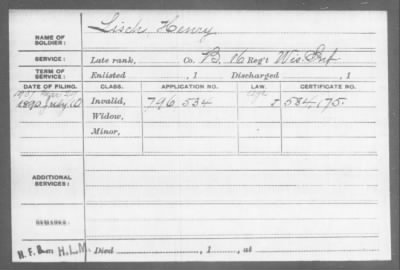 NAME OF SOLDIER: Lisch, Henry
SERVICE: Late rank, Co. B, 16 Reg't Wis. Inf
TERM OF SERVICE: Enlisted , 1 Discharged , 1
DATE OF FILING. CLASS. APPLICATION NO. LAW. CERTIFICATE NO.
1890 July 10 Invalid, 796.534 584,175.
Widow,
Minor,
ADDITIONAL SERVICES:
REMARKS:
H.L.M. Died , 1 , at